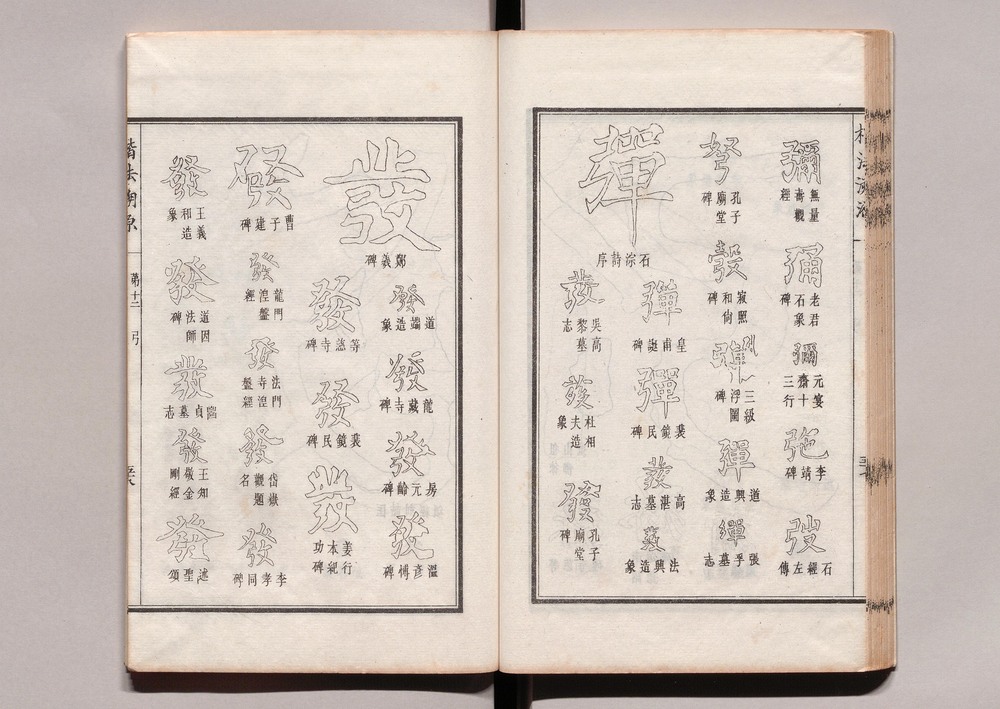 彌 無量壽觀經
彌 老君石象碑
彌 元宴齋十三行
弛 李靖碑
弢 石經左傳
弩 孔子廟堂碑
彀 寂照和尚碑
彈 三級浮圖碑
彈 道興造象
彈 張孚墓志
彈 石淙詩序
彈 皇甫誕碑
彈 裴鏡民碑
發 高湛墓志
發 法興造象
發 吳高黎墓志
發 杜相夫造象
發 孔子廟堂碑
發 鄭義碑
發 道造象
發 龍藏寺碑
發 房元齡碑
發 溫彥博碑
發 等慈寺碑
發 裴鏡民碑
發 姜行本紀功碑
發 曹子建碑
發 龍門湼槃經
發 法門寺湼槃經
發 岱嶽觀題名
發 李孝同碑
發 王義和造象
發 道因法師碑
發 貞墓志
發 王知敬金剛經
發 述聖頌
楷法溯源 第十二 弓